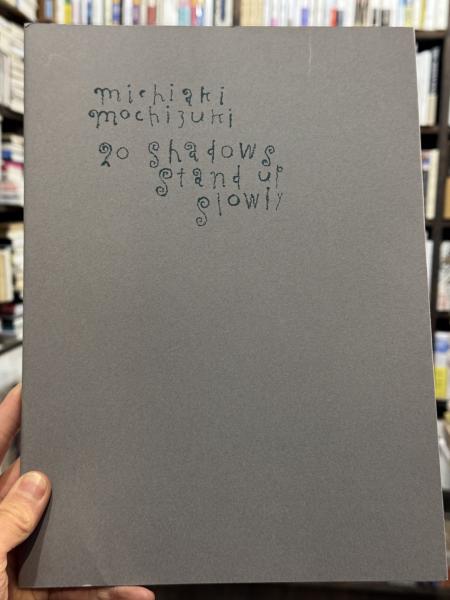 michiaki
mochizuki
20 shadows
stand up
slowly